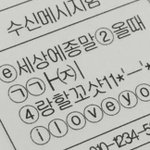 수신메시지함
ⓔ세상에종말②올때
ㄱㄱㅏ(지)
④랑할꼬샷11*'ㅡ'*
ⓘⓛⓞⓥⓔⓨⓞ
010-1234-5